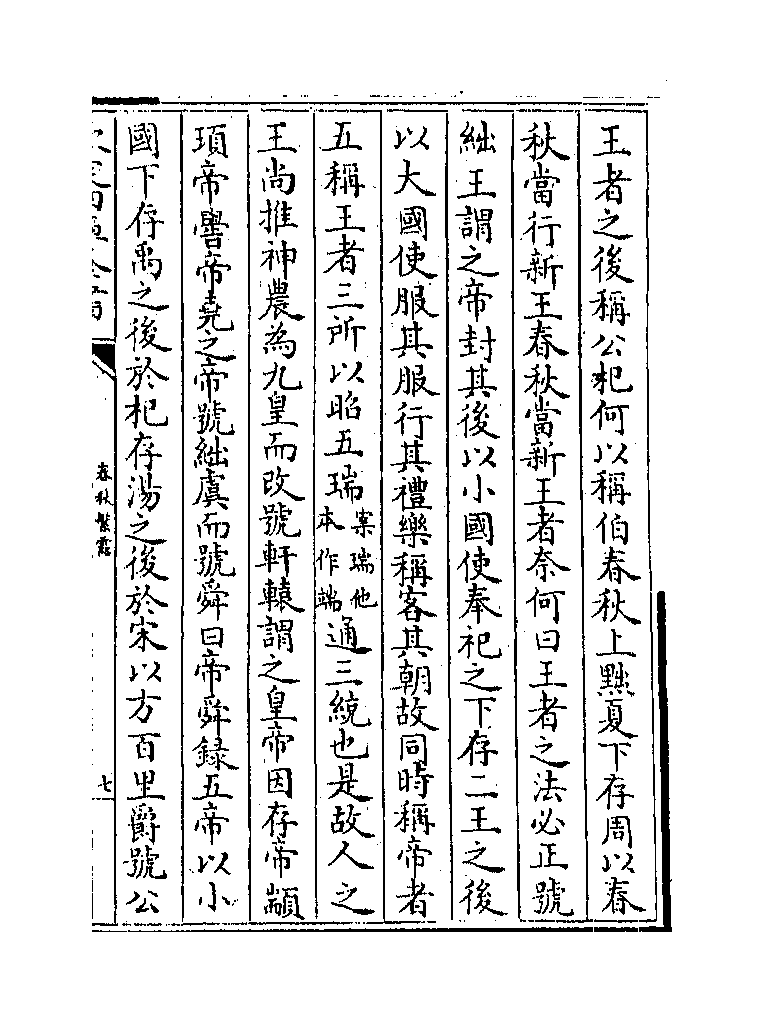 王者之後稱公杞何以稱伯春秋上黜夏下存周以春
秋當行新王春秋當新王者奈何曰王者之法必正號
絀王謂之帝封其後以小國使奉祀之下存二王之後
以大國使服其服行其禮樂稱客其朝故同時稱帝者
五稱王者三所以昭五瑞案瑞他本作端通三統也是故人之
王尚推神農為九皇而改號軒轅謂之皇帝因存帝顓
頊帝嚳帝堯之帝號絀虞而號舜曰帝舜録五帝以小
國下存禹之後於杞存湯之後於宋以方百里爵號公
春秋繁露
七